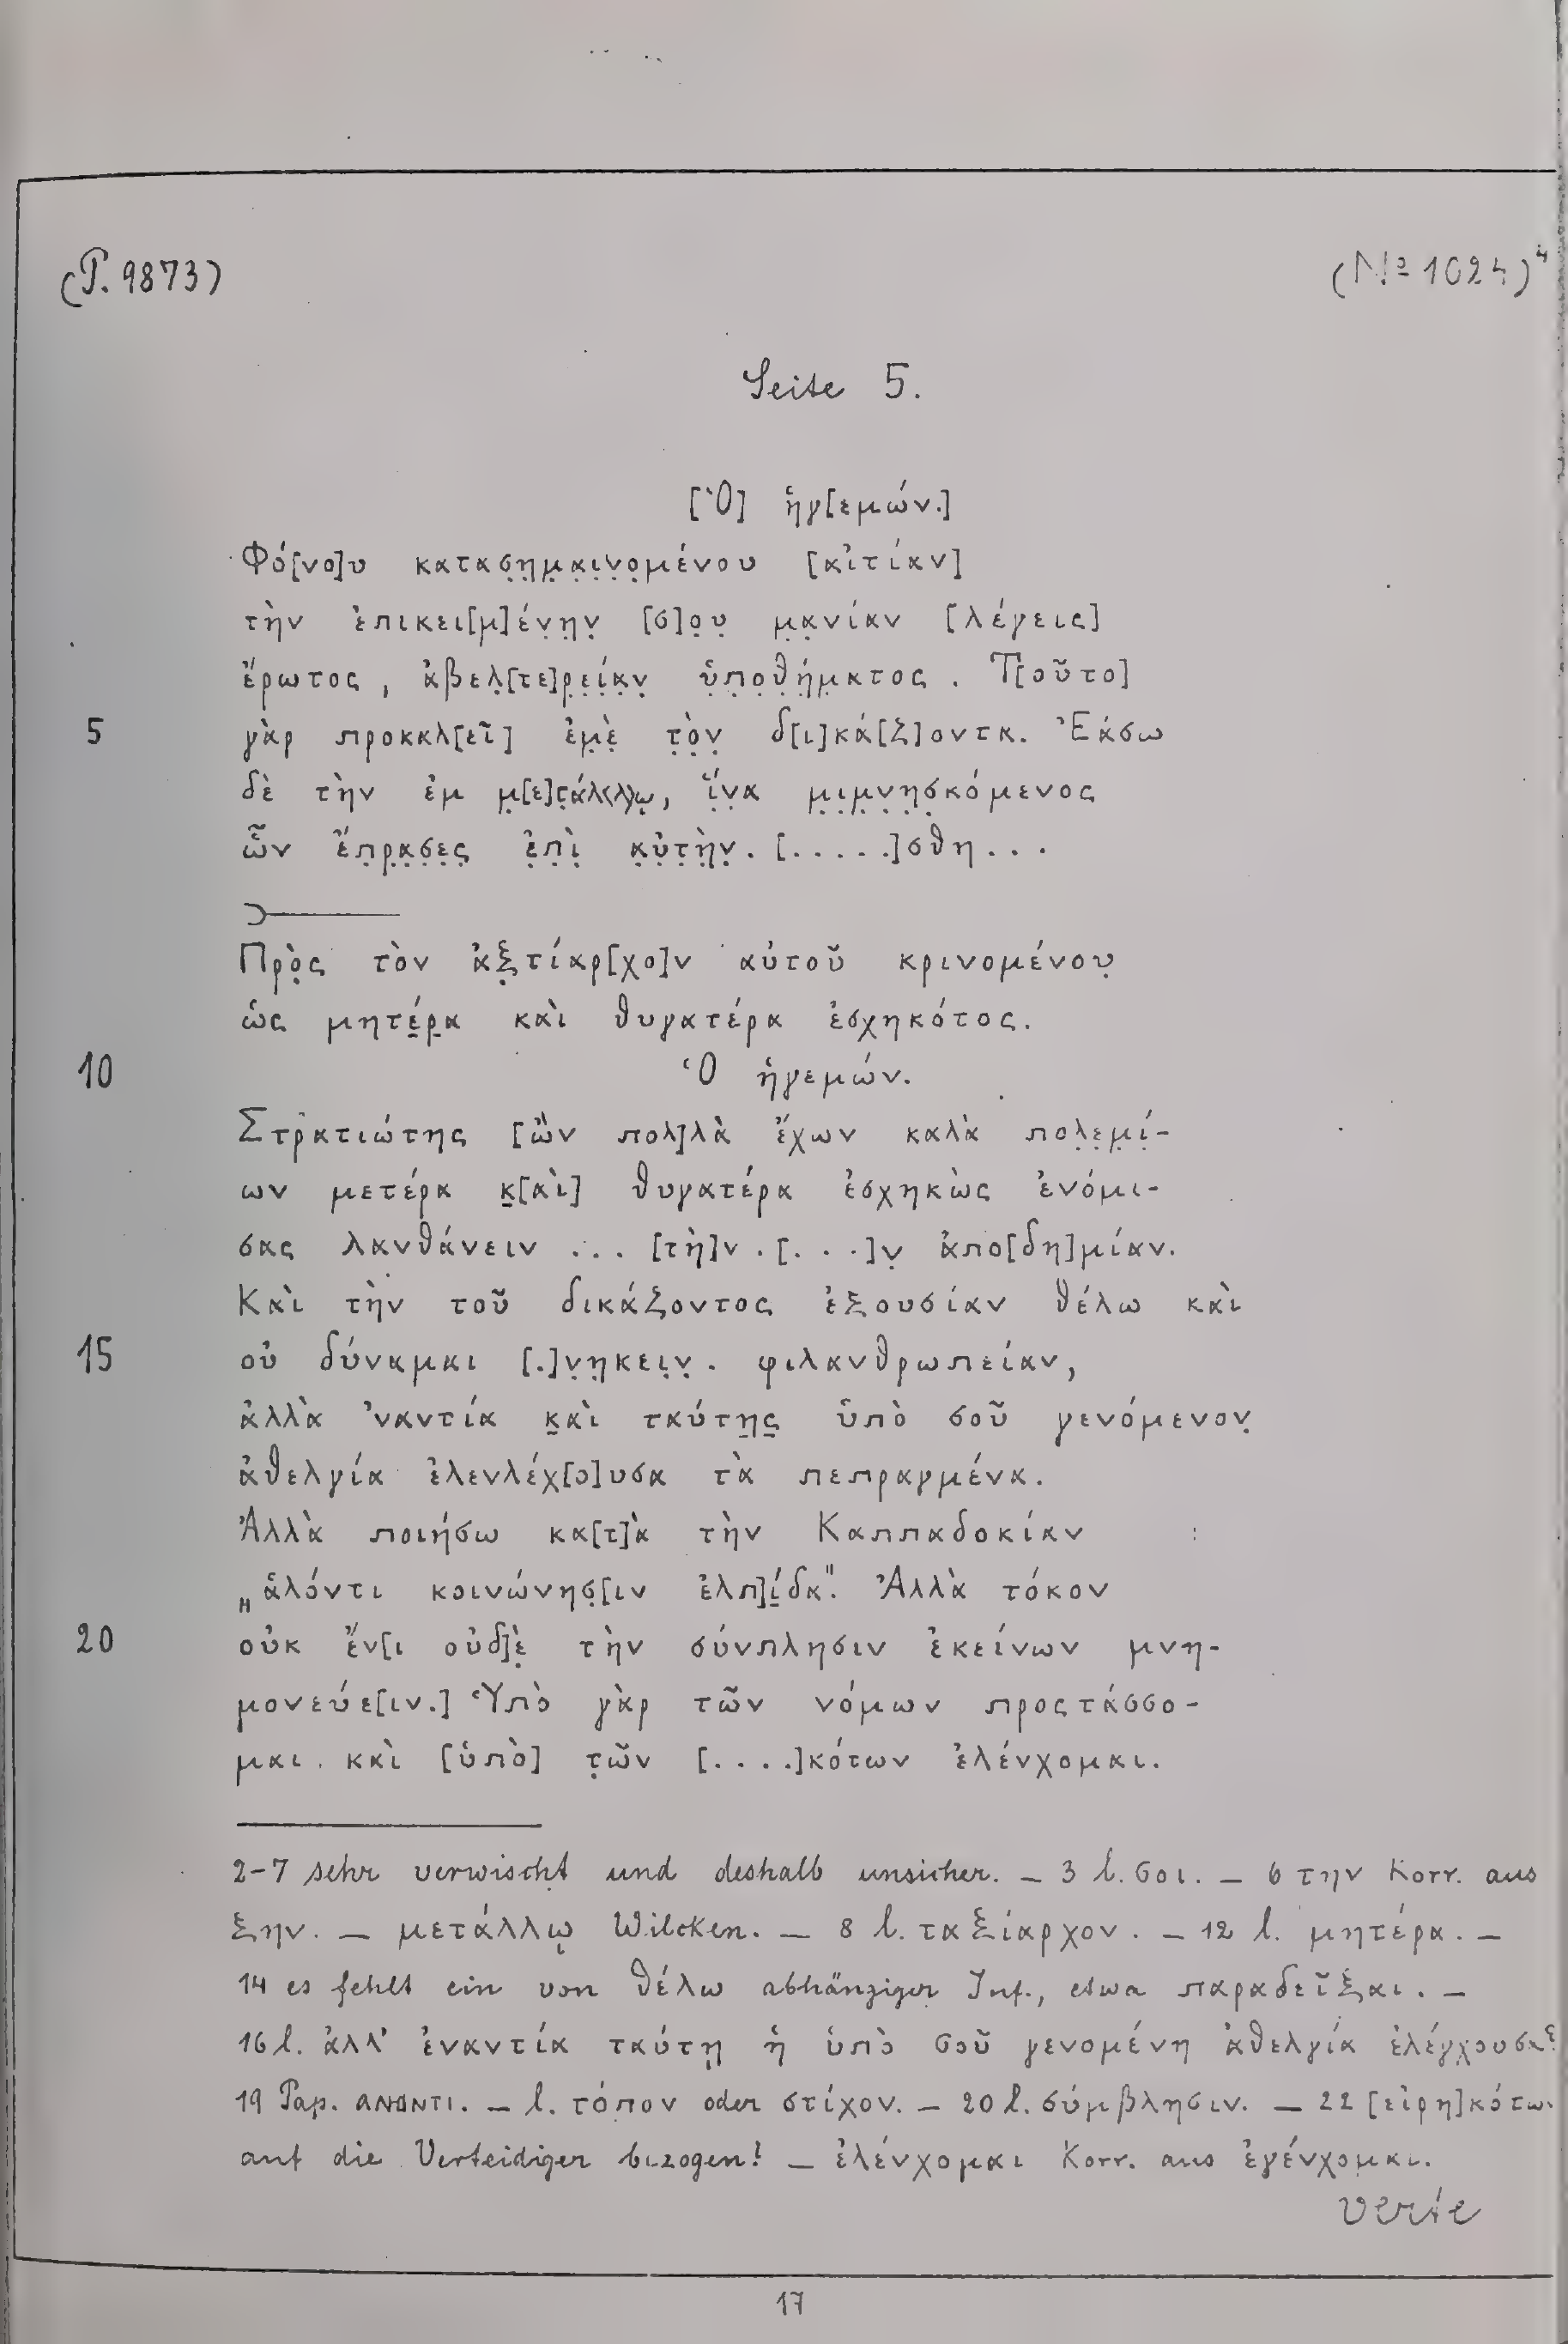 (P. 9873)
(№ 1024)⁴
Seite 5.
[Ὁ] ἡγ[εμών.]
Φό[νο]υ κατασ̣η̣μ̣α̣ι̣ν̣ο̣μένου [αἰτίαν]
τὴν ἐπικει[μ]έν̣η̣ν̣ [σ]ο̣υ̣ μ̣α̣νίαν [λέγεις]
ἔρωτος, ἀβελ̣[τε]ρ̣ε̣ί̣α̣ν̣ ὑ̣π̣ο̣θ̣ή̣μ̣ατος. Τ[οῦτο]
5 γὰρ προκαλ[εῖ] ἐμ̣ὲ̣ τ̣ὸ̣ν̣ δ[ι]κά[ζ]οντα. Ἐάσω
δὲ τὴν ἐμ μ̣[ε]τ̣άλ̣⟨λ⟩ῳ̣, ἵ̣ν̣α μ̣ι̣μ̣ν̣η̣σ̣κόμενος
ὧν ἔπ̣ρ̣α̣σ̣ε̣ς̣ ἐ̣π̣ὶ̣ α̣ὐ̣τ̣ὴ̣ν̣. [.....]σθη...
Πρὸ̣ς τὸν ἀξ̣τίαρ[χο]ν αὐτοῦ κρινομένου̣
ὡς μητέ̣ρ̣α καὶ θυγατέρα ἐσχηκότος.
10 Ὁ ἡγεμών.
Στρατιώτης [ὢν πολ]λὰ ἔχων καλὰ πολ̣ε̣μ̣ί̣-
ων μετέρα κ̣[αὶ] θυγατέρα ἐσχηκὼς ἐνόμι-
σας λανθάνειν ... [τὴ]ν .[...]ν̣ ἀπο[δη]μίαν.
Καὶ τὴν τοῦ δικάζοντος ἐξουσίαν θέλω καὶ
15 οὐ δύναμαι [.]ν̣η̣κειν̣. φιλανθρωπείαν,
ἀλλὰ ’ναντία κ̣αὶ ταύτη̣ς̣ ὑπὸ σοῦ γενόμενον̣
ἀθελγία ἐλενλέχ[ο]υσα τὰ πεπραγμένα.
Ἀλλὰ ποιήσω κα[τ]ὰ τὴν Καππαδοκίαν
„ἁλόντι κοινώνησ̣[ιν ἐλπ]ί̣δα“. Ἀλλὰ τόκον
20 οὐκ ἔν[ι οὐδ]ὲ̣ τὴν σύνπλησιν ἐκείνων μνη-
μονεύε[ιν.] Ὑπὸ γὰρ τῶν νόμων προςτάσσο-
μαι καὶ [ὑπὸ] τ̣ῶν [....]κότων ἐλένχομαι.
2-7 sehr verwischt und deshalb unsicher. – 3 l. σοι. – 6 την Korr. aus
ξην. – μετάλλῳ Wilcken. – 8 l. ταξίαρχον. – 12 l. μητέρα. –
14 es fehlt ein von θέλω abhängiger Inf., etwa παραδεῖξαι. –
16 l. ἀλλ’ ἐναντία ταύτῃ ἡ ὑπὸ σοῦ γενομένη ἀθελγία ἐλέγχουσα?
19 Pap. ανοντι. – l. τόπον oder στίχον. – 20 l. σύμβλησιν. – 22 [εἰρη]κότω.
auf die Verteidiger bezogen? – ἐλένχομαι Korr. aus ἐγένχομαι.
verte
17